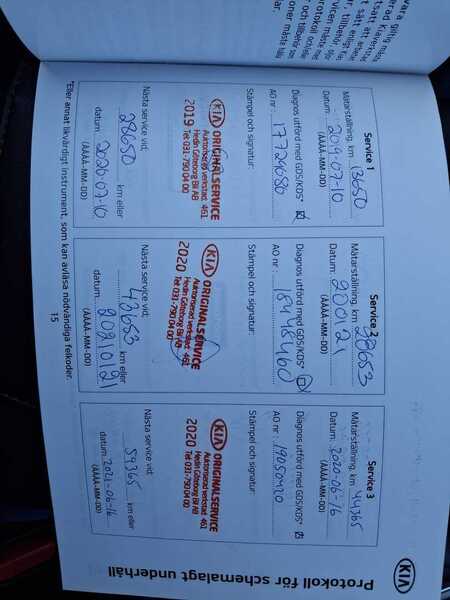 Protokoll för schemalagt underhåll
KIA
Service 1
Mätarställning, km 13650
Datum: 2019-07-10
(ÅÅÅÅ-MM-DD)
Diagnos utförd med GDS/KDS*
AO nr: 17726080
Stämpel och signatur:
KIA ORIGINALSERVICE
Auktoriserad verkstad 461
2019 Hedin Göteborg Bil AB
Tel: 031-790 04 00
Nästa service vid:
28650 km eller
datum 2020-07-10
(ÅÅÅÅ-MM-DD)
Service 2
Mätarställning, km 28653
Datum: 200121
(ÅÅÅÅ-MM-DD)
Diagnos utförd med GDS/KDS*
AO nr: 18448460
Stämpel och signatur:
KIA ORIGINALSERVICE
Auktoriserad verkstad 461
2020 Hedin Göteborg Bil AB
Tel: 031-790 04 00
Nästa service vid:
43653 km eller
datum: 20210121
(ÅÅÅÅ-MM-DD)
Service 3
Mätarställning, km 44365
Datum: 2020-06-16
(ÅÅÅÅ-MM-DD)
Diagnos utförd med GDS/KDS*
AO nr: 19050420
Stämpel och signatur:
KIA ORIGINALSERVICE
Auktoriserad verkstad 461
2020 Hedin Göteborg Bil AB
Tel: 031-790 04 00
Nästa service vid:
59365 km eller
datum: 2021-06-16
(ÅÅÅÅ-MM-DD)
*Eller annat likvärdigt instrument, som kan avläsa nödvändiga felkoder.
15